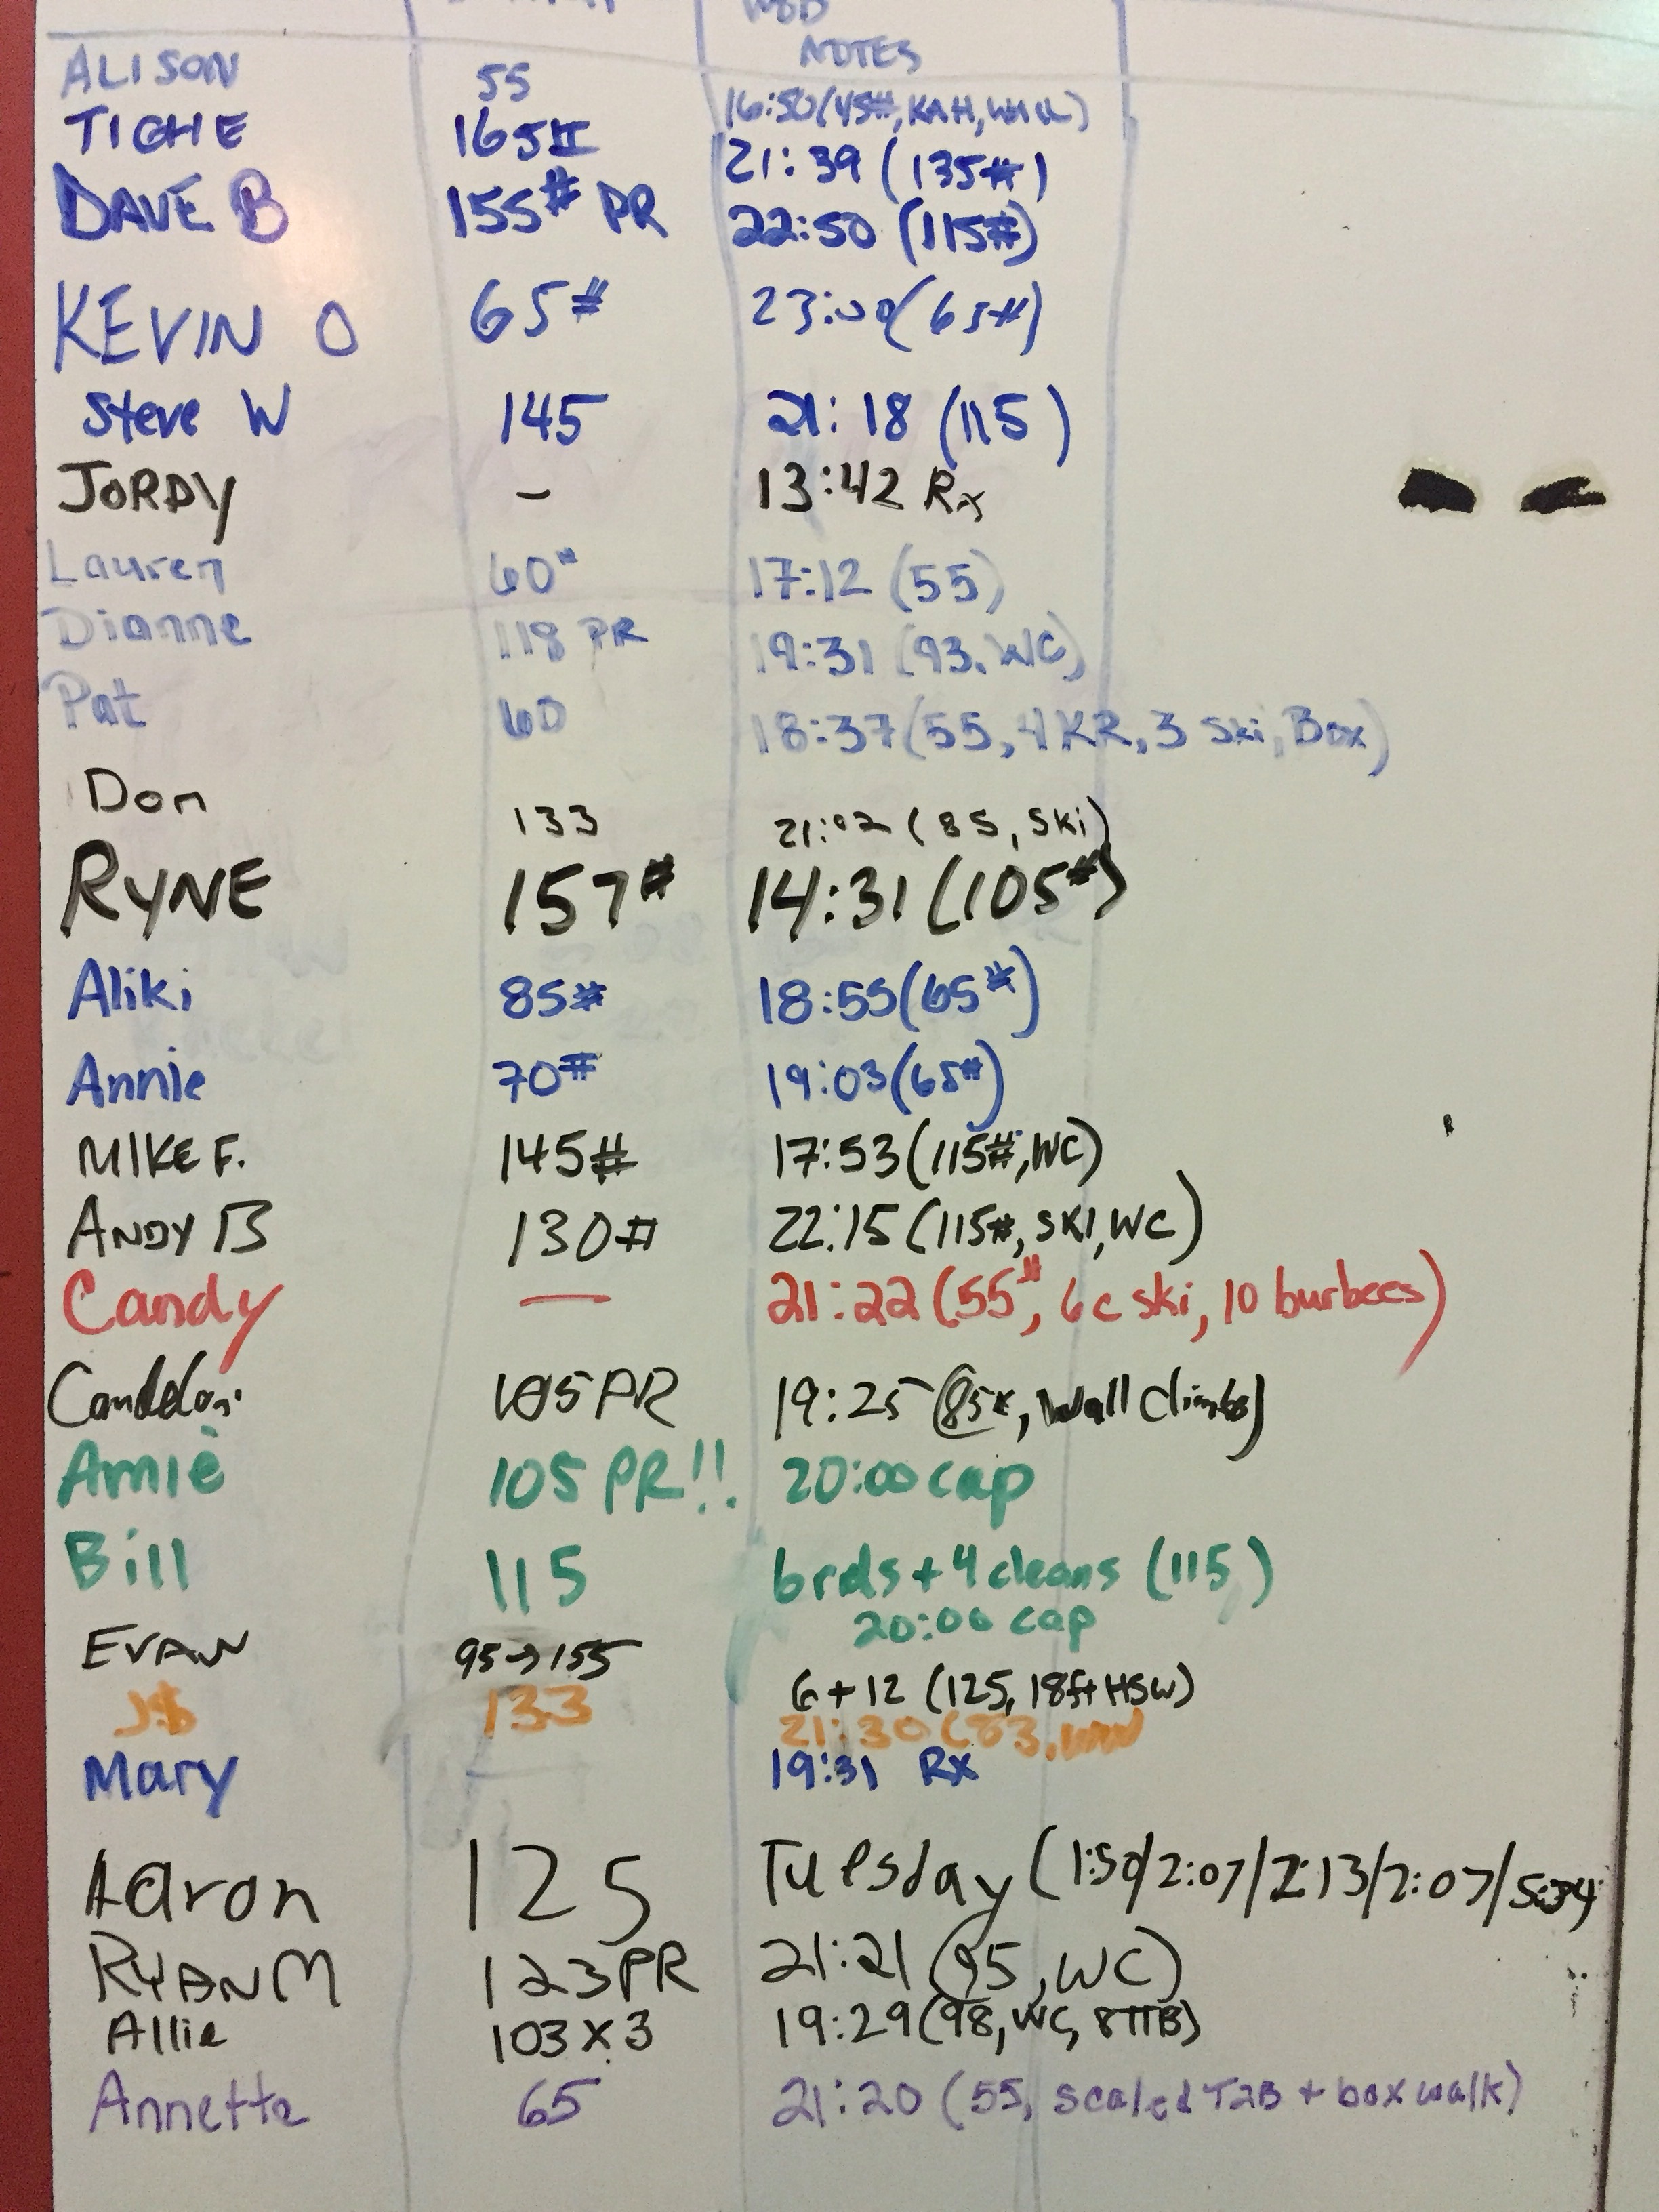 NOTES
ALISON 55 16:50 (45#, KAH, WALL)
TIGHE 165# 21:39 (135#)
DAVE B 155# PR 22:50 (115#)
KEVIN O 65# 23:00 (65#)
Steve W 145 21:18 (115)
JORDY – 13:42 Rx
Lauren 60# 17:12 (55)
Dianne 118 PR 19:31 (93, WC)
Pat 60 18:37 (55, 4 KR, 3 Ski, Box)
Don 133 21:02 (85, Ski)
RYNE 157# 14:31 (105#)
Aliki 85# 18:55 (65#)
Annie 70# 19:03 (65#)
MIKE F. 145# 17:53 (115#, WC)
ANDY B 130# 22:15 (115#, SKI, WC)
Candy — 21:22 (55#, 6c ski, 10 burbees)
105 PR 19:25 (85#, Wall Climbs)
Amie 105 PR!! 20:00 cap
Bill 115 6 rds + 4 cleans (115)
20:00 cap
EVAN 95→155 6 + 12 (125, 18ft HSW)
J$ 133 21:30 (83,
Mary — 19:31 Rx
Aaron 125 Tuesday (1:50/2:07/2:13/2:07/5:34
RYAN M 123 PR 21:21 (95, WC)
Allie 103 x 3 19:29 (98, WC, 8 TTB)
Annette 65 21:20 (55, scaled T2B + box walk)